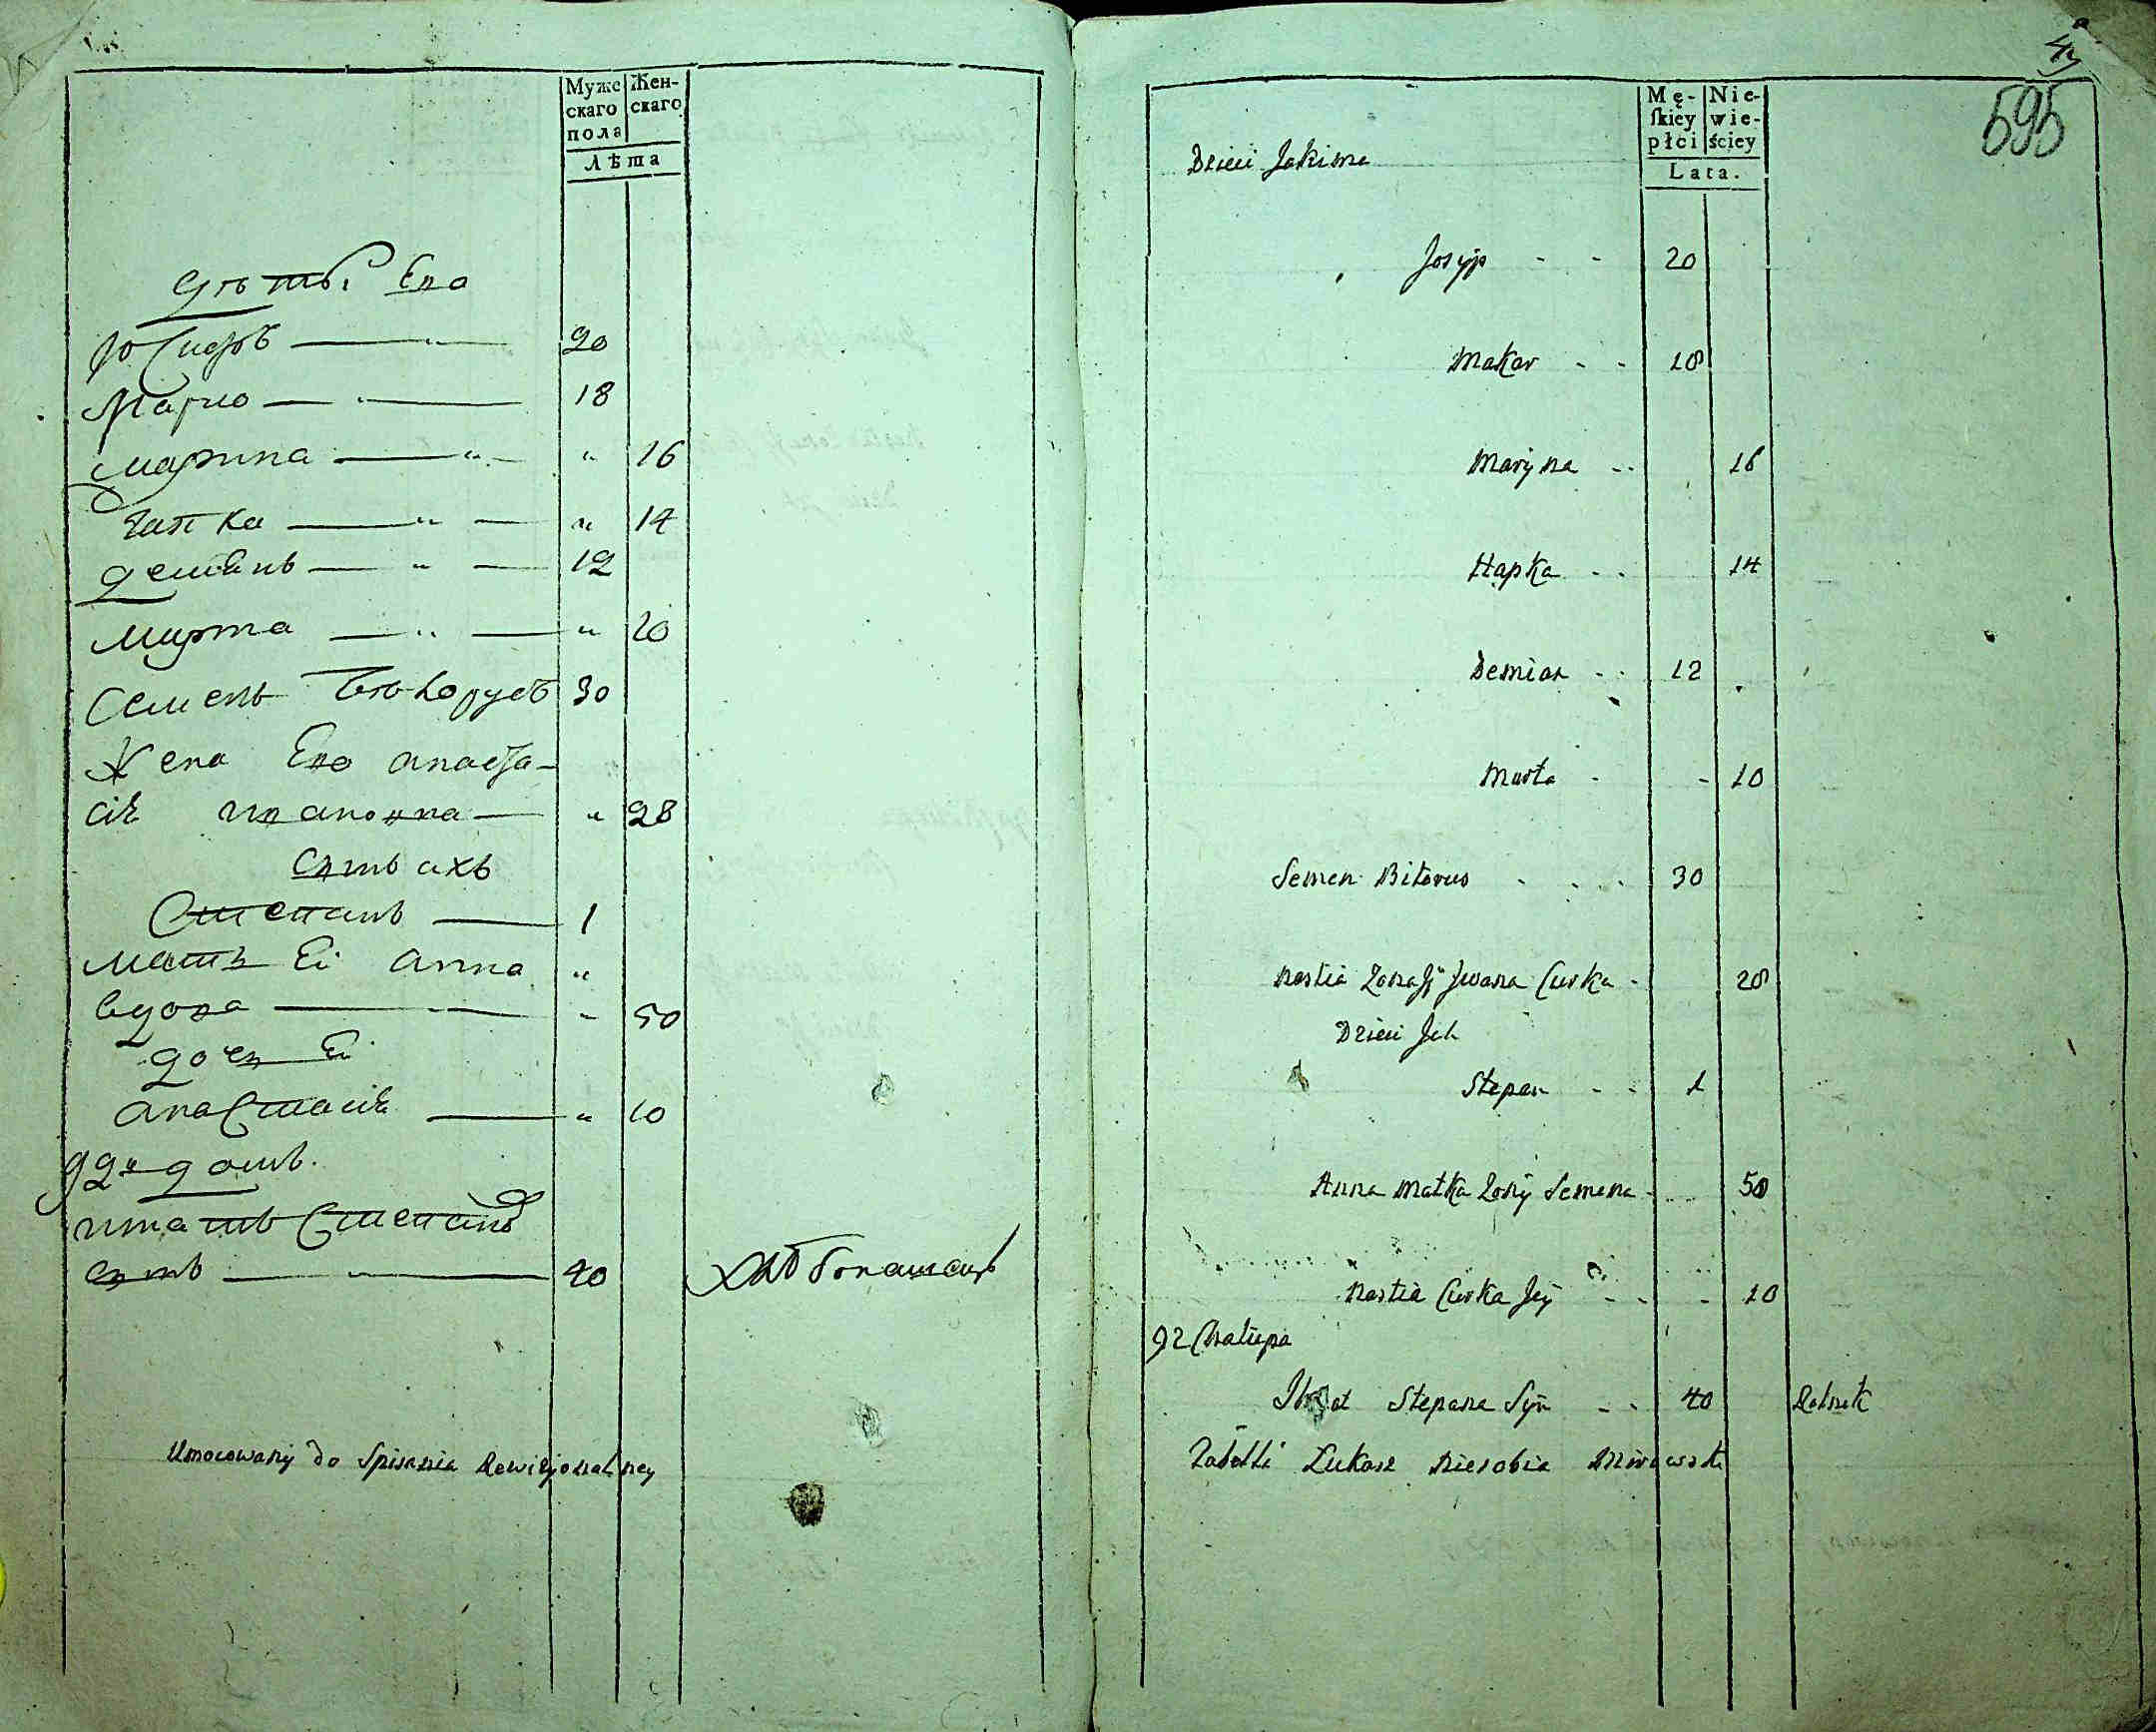 Муже Жен-
скаго скаго
пола
Лѣта
дѣти Его
Юсифъ 20
Марко 18
марина " 16
Гапка " 14
демянъ 12
марта " 10
Семенъ Белорусъ 30
Жена Его анаста-
сія ивановна " 28
Сынъ ихъ
Степанъ 1
мать Ей анна "
вдова " 50
дочь Ей
анастасія " 10
92й домъ
игнатъ Степановъ
сынъ 40
Umocowany do Spisania Rewizjonalney
47
595
Mę- Nie-
ſkiey wie-
płci ściey
Lata.
Dzieci Jakima
Josyp - - 20
Makar - - 18
Maryna - - 16
Hapka - - 14
Demian - - 12
Marta - - 10
Semen Biłorus - - - 30
Nastia Żona Jy Jwana Curka - 28
Dzieci Jch
Stepan - - 1
Anna Matka Żony Semena - 50
Nastia Curka Jey - - - 10
92 Chałupa
Ihnat Stepana Syn - - 40 Rolnik
Tabelli Łukasz